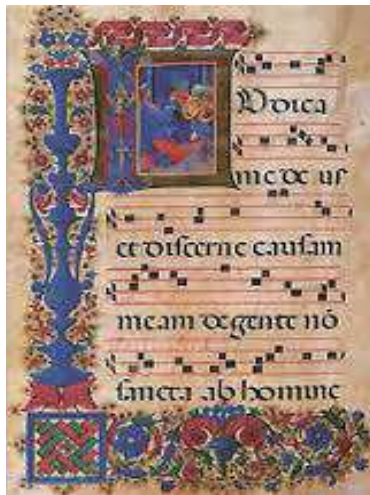 IVdica
me de us
et discerne causam
meam de gente nõ
sancta ab homine